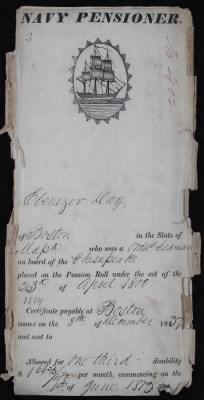 NAVY PENSIONER.
No 402
Ebenezer Day
of Boston in the State of
Massa who was a Seaman
on board of the Chesapeake
placed on the Pension Roll under the act of the
23d of April 1800
Certificate payable at Boston
issued on the 8th of December 1837
and sent to
Allowed for one third disability
$ per month, commencing on the
1st of June 1813